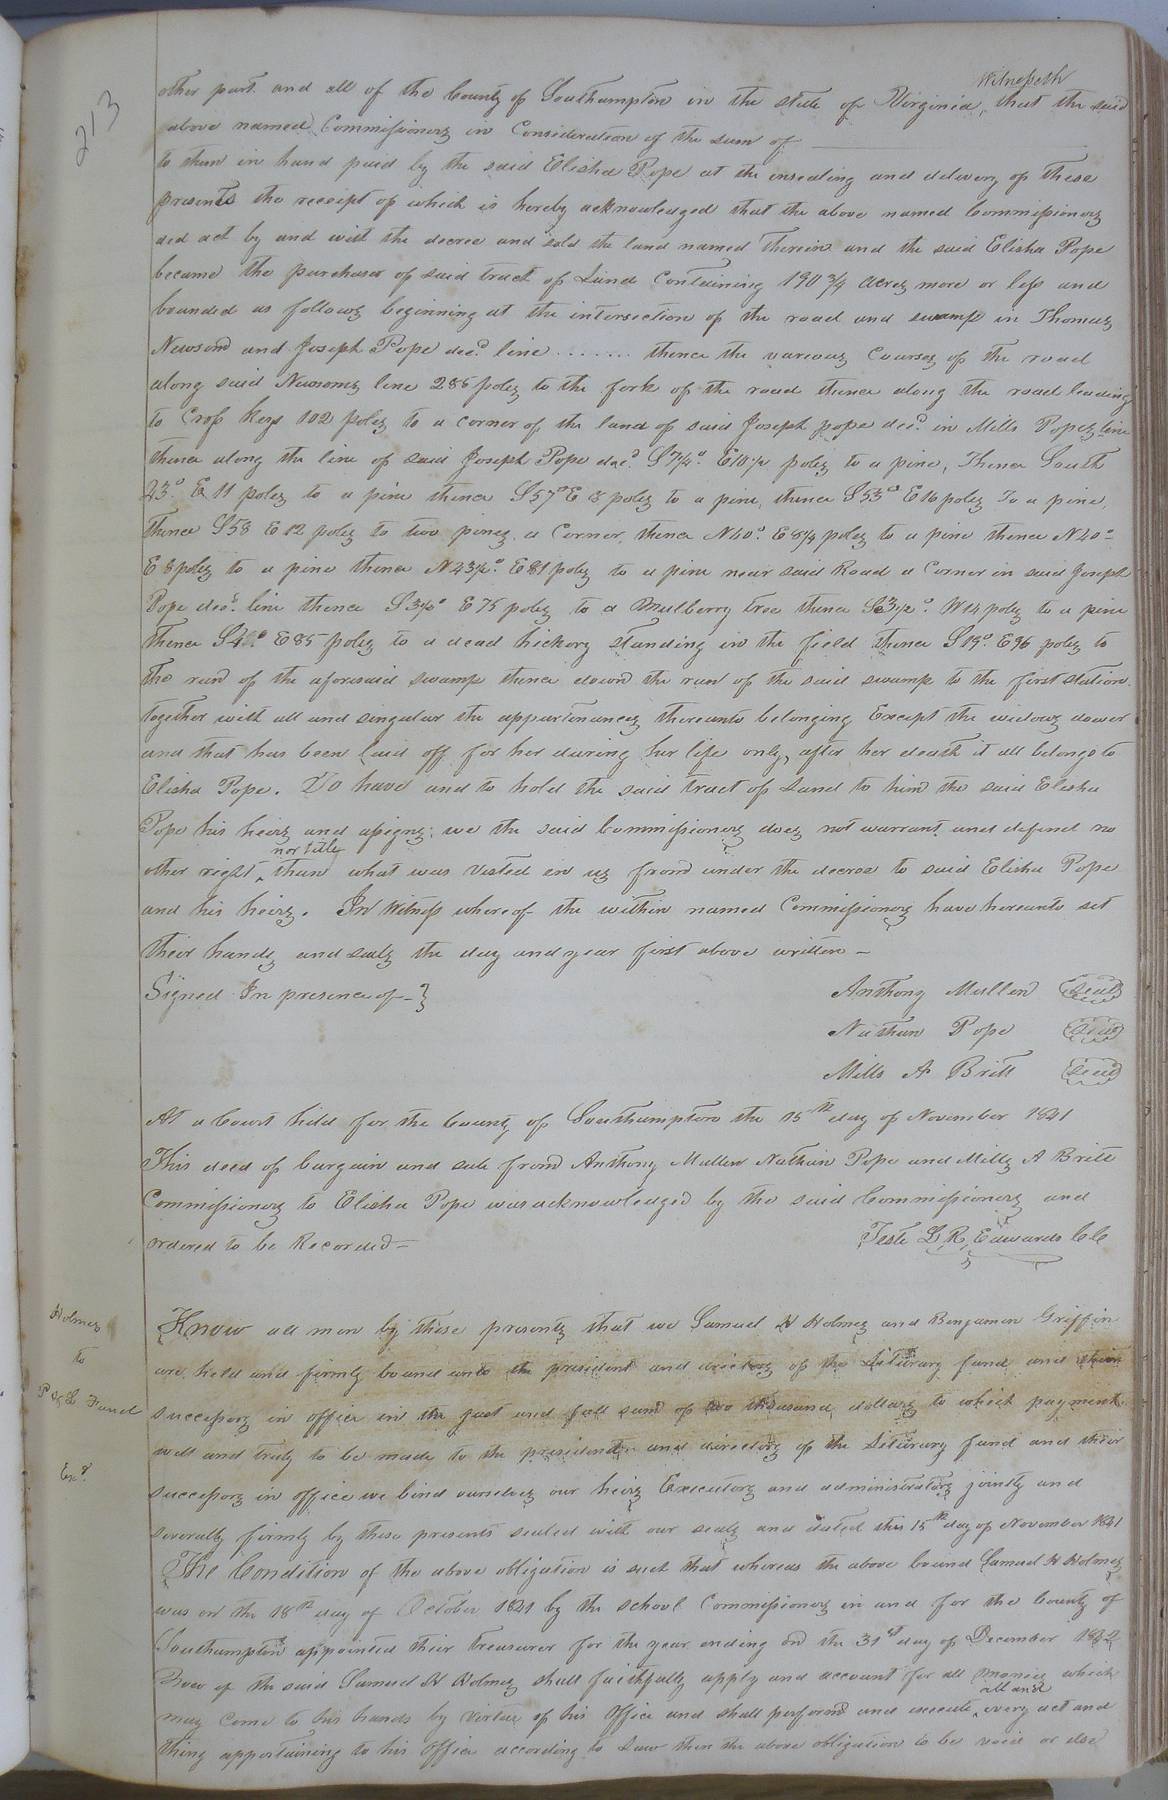 213
Witnesseth
other part and all of the County of Southampton in the state of Virginia, that the said
above named Commissioners in Consideration of the sum of
to them in hand paid by the said Elisha Pope at the ensealing and delivery of these
presents the receipt of which is hereby acknowledged that the above named Commissioners
did act by and with the decree and sold the land named Therein and the said Elisha Pope
became the purchaser of said tract of Land Containing 190 3/4 acres more or less and
bounded as follows beginning at the intersection of the road and swamp in Thomas
Newsom and Joseph Pope decd. line ........ thence the various Courses of the road
along said Newsoms line 285 poles to the fork of the road thence along the road leading
to Cross Keys 102 poles to a corner of the land of said Joseph pope decd. in Mills Popes line
thence along the line of said Joseph Pope decd. E10 1/2 poles to a pine, Thence South
23° E 11 poles to a pine thence S57° E 8 poles to a pine, thence S53° E16 poles To a pine,
thence S58 E12 poles to two pines a Corner, thence N40°. E 8 1/4 poles to a pine thence N40°
E 8 poles to a pine thence N23 1/2°. E81 poles to a pine near said Road a Corner in said Joseph
Pope decd. line thence E75 poles to a Mulberry tree thence W14 poles to a pine
thence E85 poles to a dead hickory standing in the field thence S19°. E96 poles to
the run of the aforesaid swamp thence down the run of the said swamp to the first station.
together with all and singular the appurtenances thereunto belonging Except the widows dower
and that has been laid off for her during her life only, after her death it all belongs to
Elisha Pope. To have and to hold the said tract of Land to him the said Elisha
Pope his heirs and assigns; we the said Commissioners does not warrant and defend no
nor title
other right ‸ than what was Vested in us from under the decree to said Elisha Pope
and his heirs. In Witness whereof the within named Commissioners have hereunto set
their hands and seals the day and year first above written -
Signed In presence of - }
Anthony Mullen Seal
Nathan Pope Seal
Mills A Britt Seal
At a Court held for the County of Southampton the 15th day of November 1841
This deed of bargain and sale from Anthony Mullen Nathan Pope and Mills A Britt
Commissioners to Elisha Pope was acknowledged by the said Commissioners and
ordered to be Recorded -
Teste L R Edwards CC
Holmes
to
P & L Fund
Exd
Know all men by these presents that we Samuel H Holmes and Benjamin Griffin
are held and firmly bound unto the president and directors of the Literary fund and their
successors in office in the just and full sum of two thousand dollars to which payment
well and truly to be made to the president and directors of the Literary fund and their
successors in office we bind ourselves our heirs Executors and administrators jointly and
severally firmly by these presents sealed with our seals and dated this 15th day of November 1841
The Condition of the above obligation is such that whereas the above bound Samuel H Holmes
was on the 18th day of October 1841 by the school Commissioners in and for the County of
Southampton appointed their treasurer for the year ending on the 31st day of December 1842
Now if the said Samuel H Holmes shall faithfully apply and account for all monies which
all and
may Come to his hands by virtue of his office and shall perform and execute ‸ every act and
thing appertaining to his office according to Law then the above obligation to be void or else